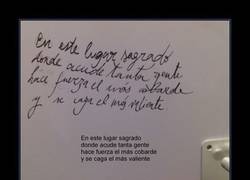 En este lugar sagrado
donde acude tanta gente
hace fuerza el más cobarde
y se caga el más valiente
En este lugar sagrado
donde acude tanta gente
hace fuerza el más cobarde
y se caga el más valiente